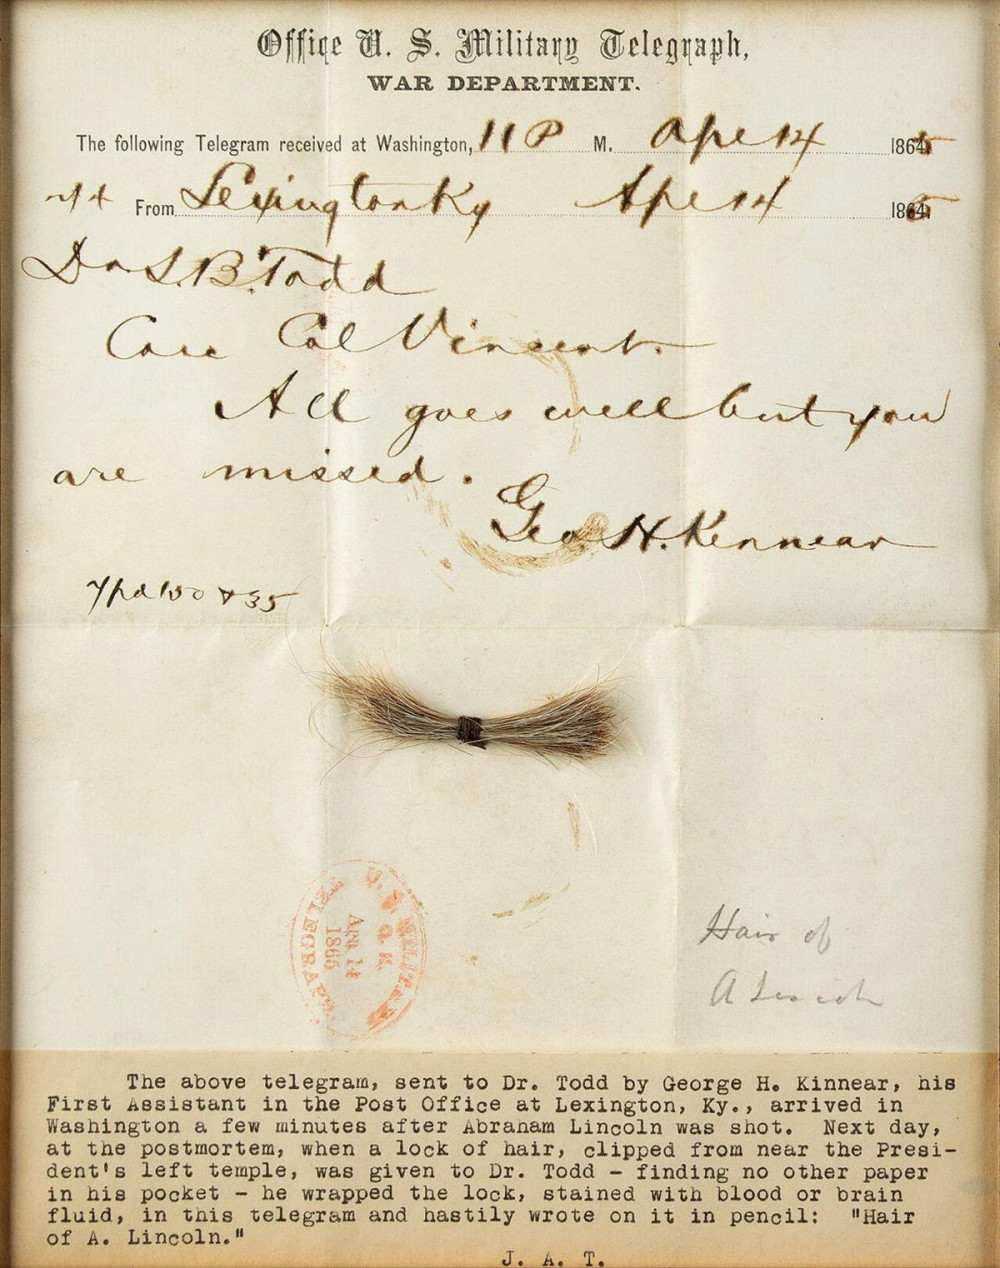 Office U. S. Military Telegraph,
WAR DEPARTMENT.
The following Telegram received at Washington, 11 P M. Apl 14 1865
From Lexington Ky Apl 14 1865
Dr L. B. Todd
Care Col Vincent.
All goes well but you
are missed.
Geo H. Kinnear
35
U. S. MILITARY
O. K.
Apr 14
1865
TELEGRAPH
Hair of
A Lincoln
The above telegram, sent to Dr. Todd by George H. Kinnear, his
First Assistant in the Post Office at Lexington, Ky., arrived in
Washington a few minutes after Abraham Lincoln was shot. Next day,
at the postmortem, when a lock of hair, clipped from near the Presi-
dent's left temple, was given to Dr. Todd - finding no other paper
in his pocket - he wrapped the lock, stained with blood or brain
fluid, in this telegram and hastily wrote on it in pencil: "Hair
of A. Lincoln."
J. A. T.